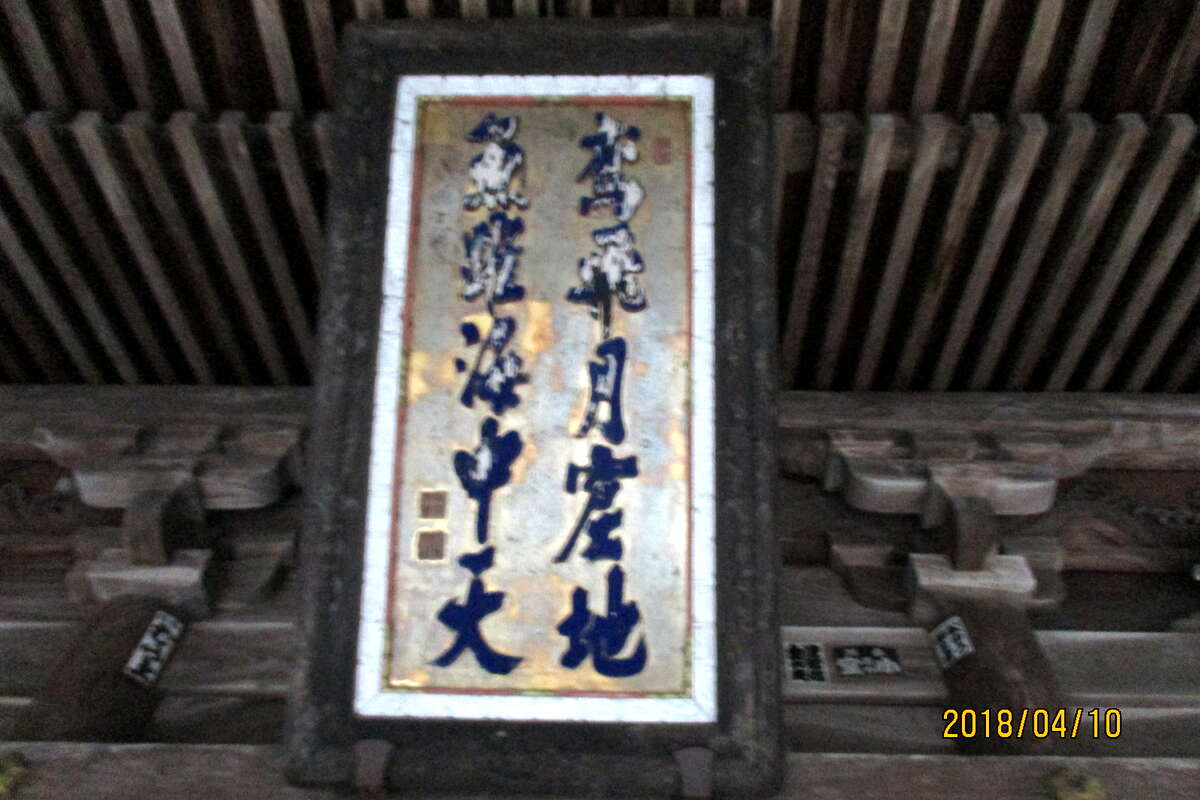 鳶飛月窟地
魚躍海中天
2018/04/10